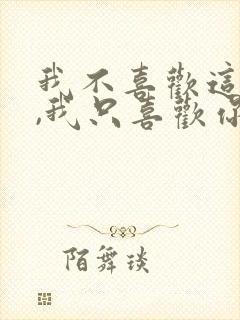 我不喜歡這
,我只喜歡你
陌舞琰